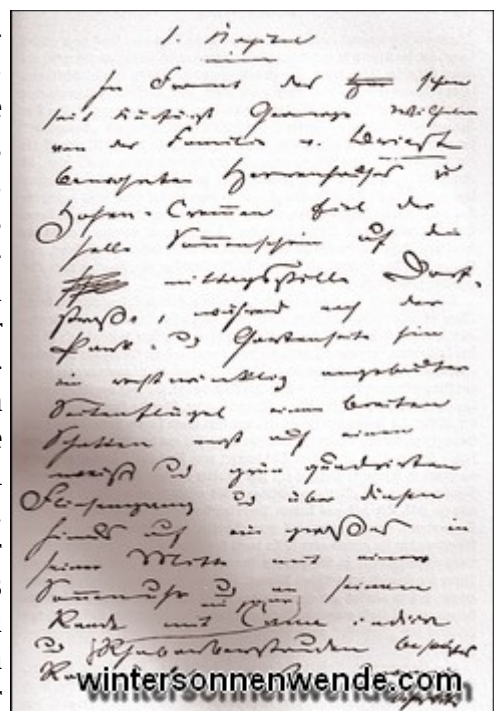 1. Kapitel
In Front des schon
seit Kurfürst George Wilhelm
von der Familie v. Briest
bewohnten Herrenhauses zu
Hohen-Cremmen fiel der
helle Sonnenschein auf die
mittagsstille Dorf-
straße, während nach der
Park- u Gartenseite hin
ein rechtwinklig angebauter
Seitenflügel einen breiten
Schatten erst auf einen
weiß u grün quadrirten
Fliesengang u über diesen
hinaus auf ein großes in
seiner Mitte mit einer
Sonnenuhr u an seinem
Rande mit Canna indica
u Rhabarberstauden besetztes
wintersonnenwende.com